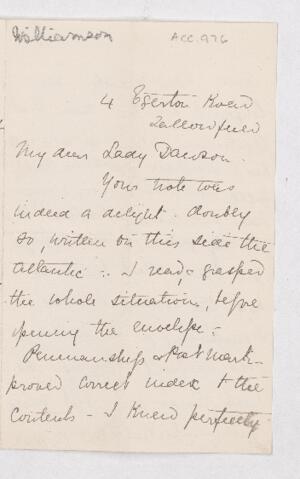 Williamson
ACC. 976
4 Egerton Road
Fallowfield
My dear Lady Dawson.
Your note was
indeed a delight. doubly
so, written on this side the
Atlantic :. I read, & grasped
the whole situation, before
opening the envelope :-
Penmanship & Post mark -
proved correct index to the
Contents - I knew perfectly